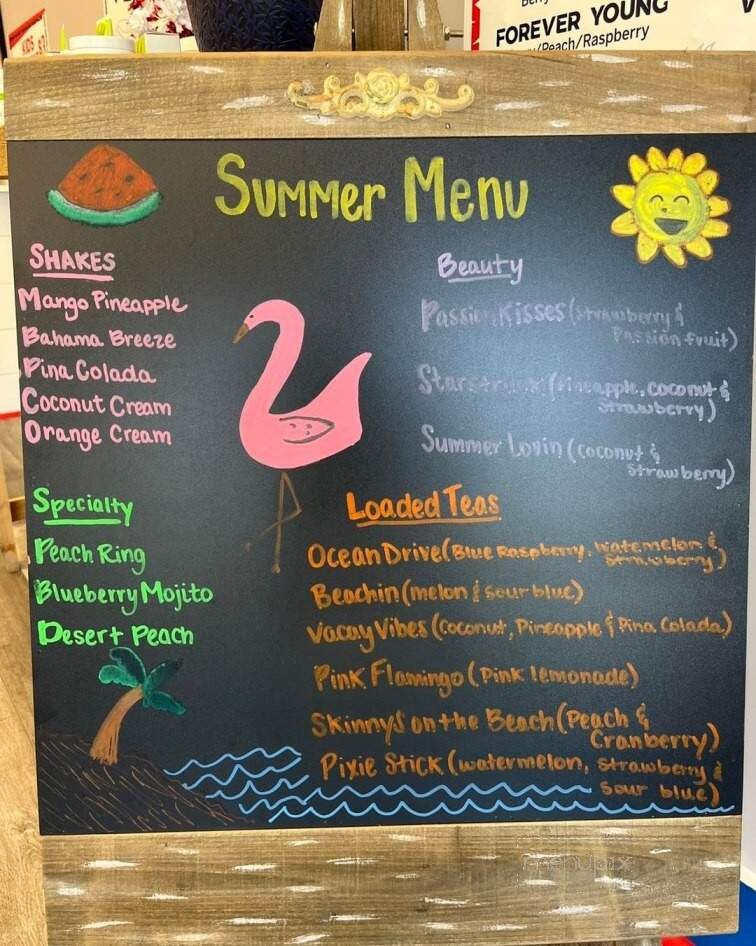 KIDS
FOREVER YOUNG
/Peach/Raspberry
Summer Menu
Shakes
Mango Pineapple
Bahama Breeze
Pina Colada
Coconut Cream
Orange Cream
Specialty
Peach Ring
Blueberry Mojito
Desert Peach
Beauty
Passion Kisses (Strawberry &
Passion fruit)
(Pineapple, coconut &
Strawberry)
Summer Lovin (coconut &
Strawberry)
Loaded Teas
Ocean Drive (Blue Raspberry, watemelon &
Strawberry)
Beachin (melon & sour blue)
Vacay Vibes (coconut, Pineapple & Pina Colada)
Pink Flamingo (Pink lemonade)
SkinnyS on the Beach (Peach &
Cranberry)
Pixie Stick (watermelon, strawberry &
sour blue)
menupix